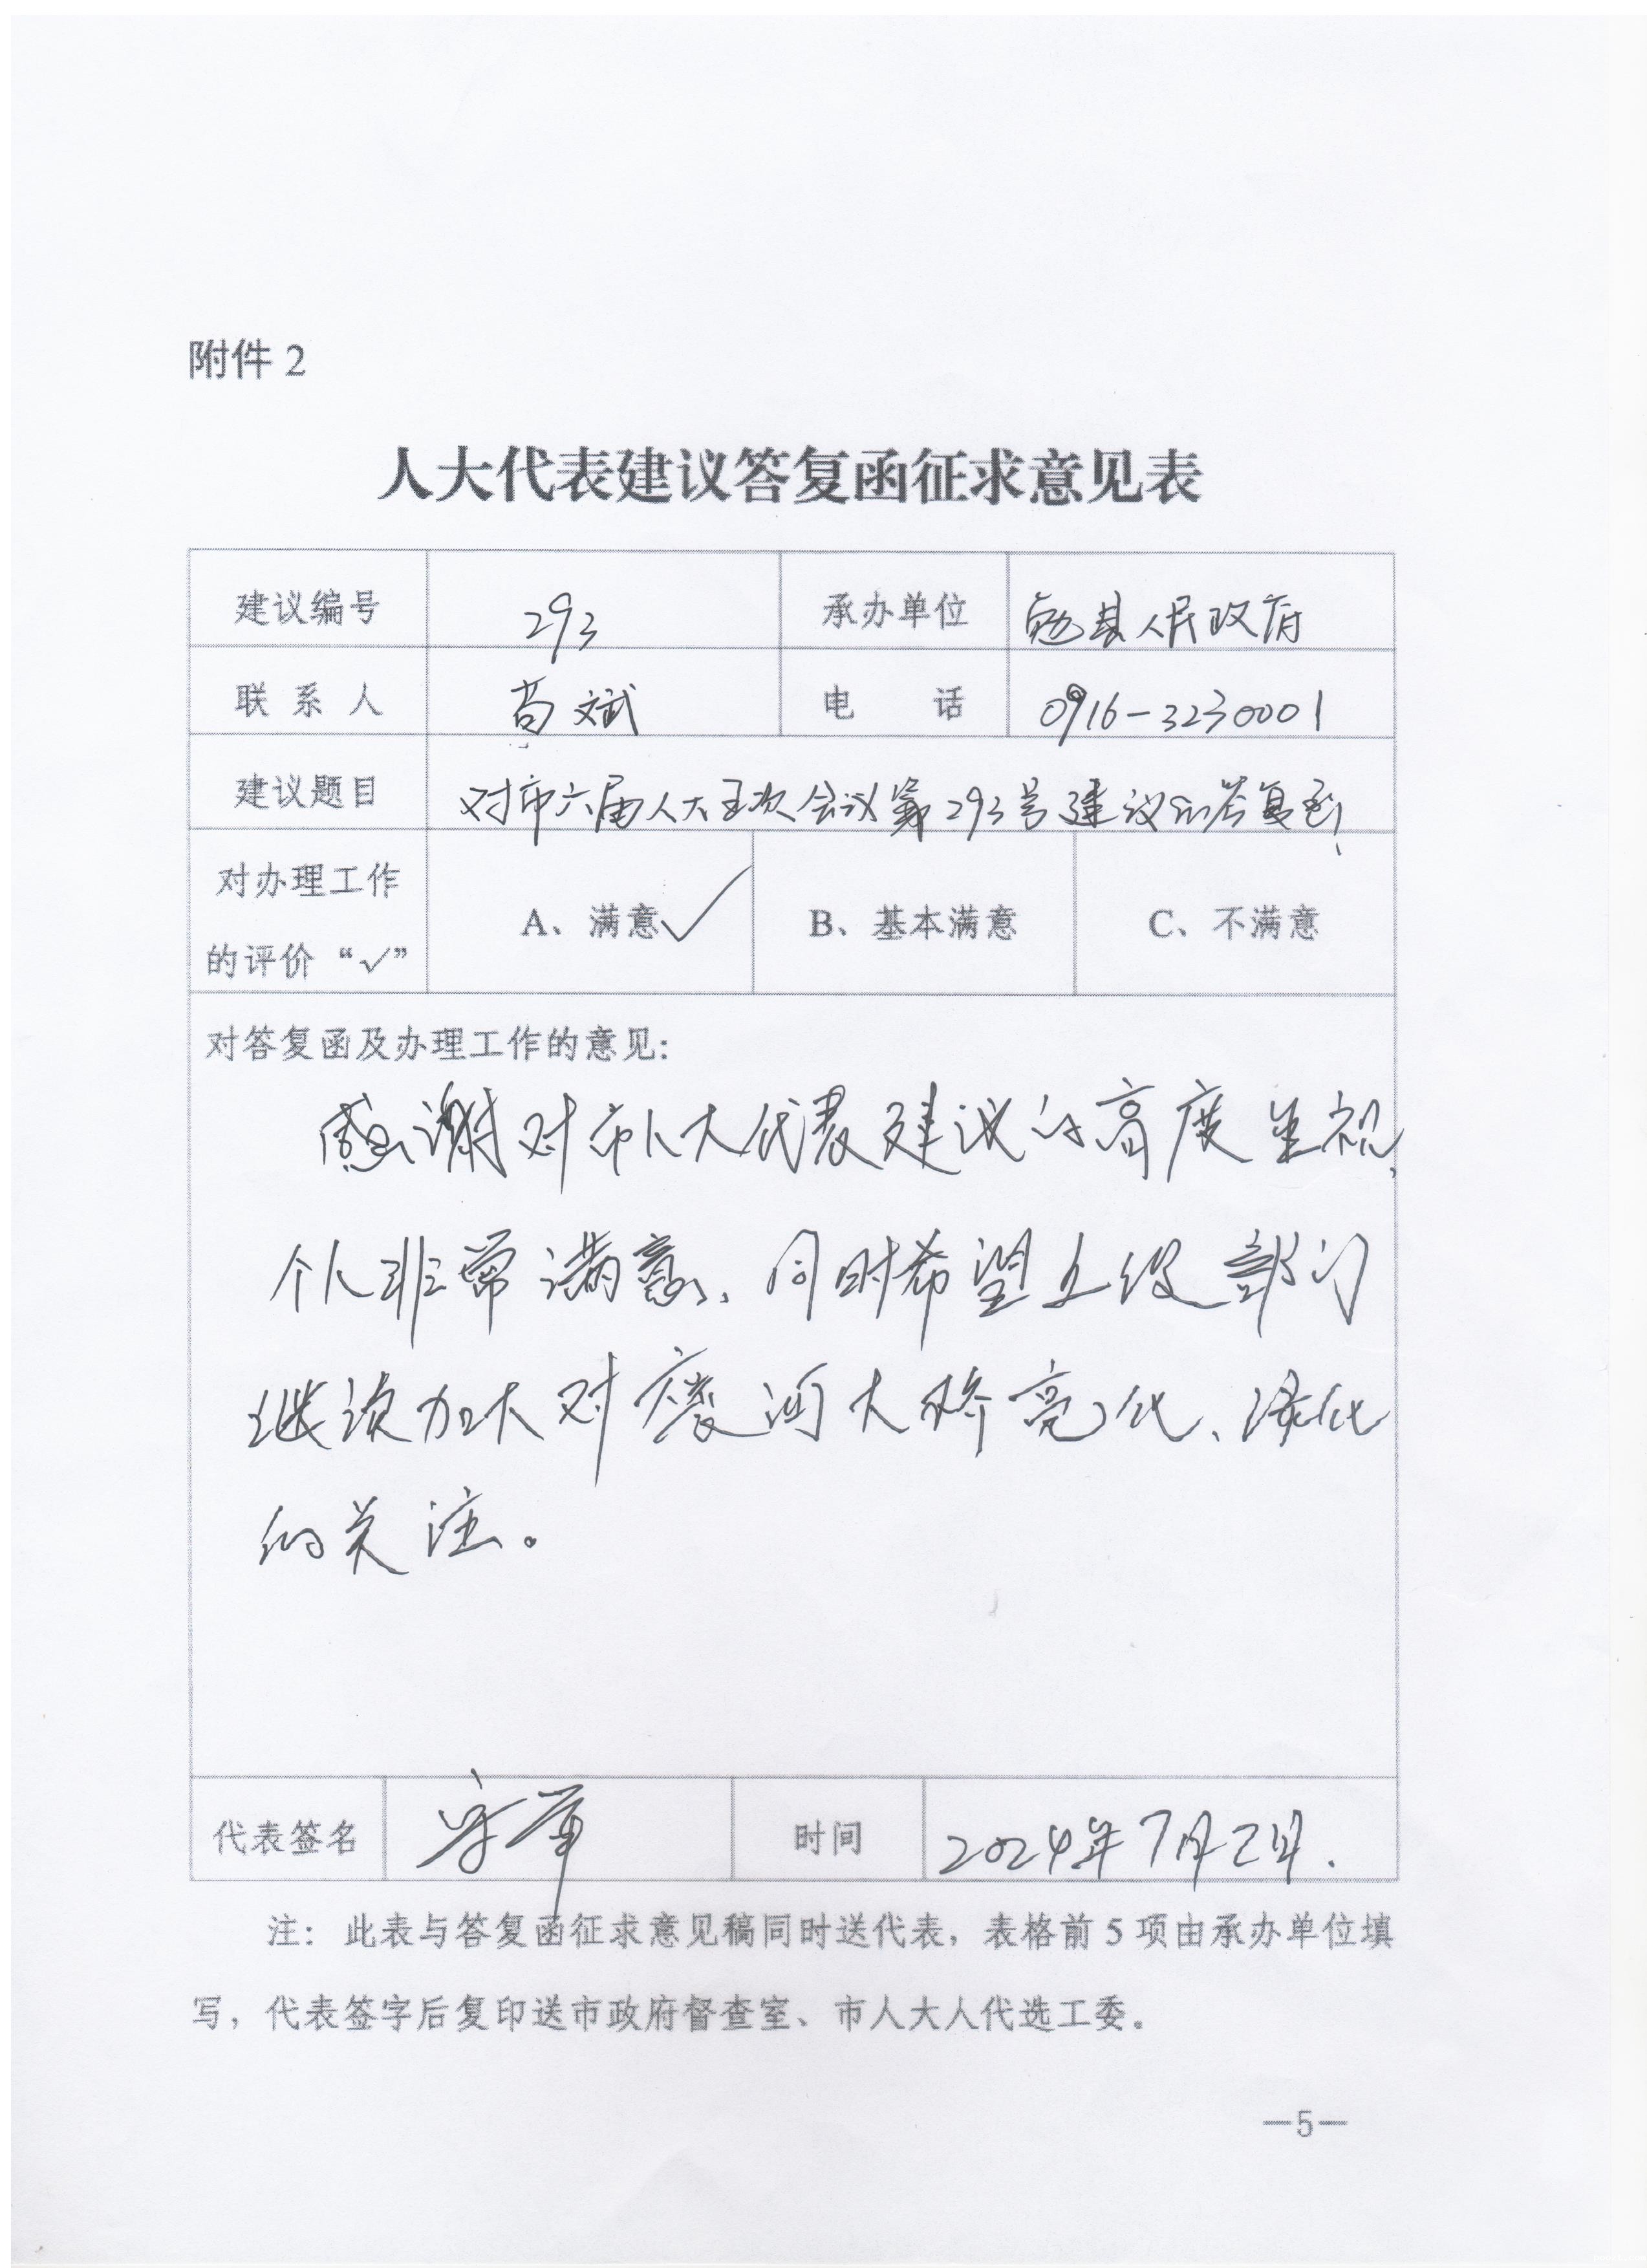 附件 2
人大代表建议答复函征求意见表
建议编号 293 承办单位 勉县人民政府
联系人 苟文斌 电话 0916-3230001
建议题目 对市六届人大五次会议第293号建议的答复函
对办理工作
的评价“✓” A、满意✓ B、基本满意 C、不满意
对答复函及办理工作的意见:
感谢对市人大代表建议的高度重视,
个人非常满意、同时希望上级部门
继续加大对 河大桥亮化、绿化
的关注。
代表签名 时间 2024年7月2日.
注：此表与答复函征求意见稿同时送代表，表格前 5 项由承办单位填
写，代表签字后复印送市政府督查室、市人大人代选工委。
—5—